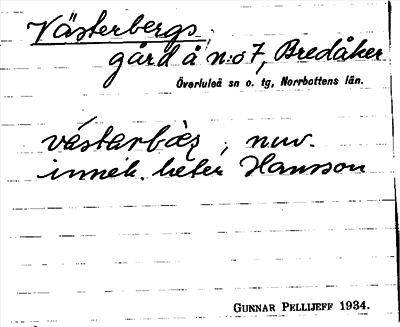 Västerbergs
gård å n:o 7, Bredåker
Överluleå sn o. tg, Norrbottens län.
västarbæṣ, nuv.
inneh. heter Hansson
GUNNAR PELLIJEFF 1934.